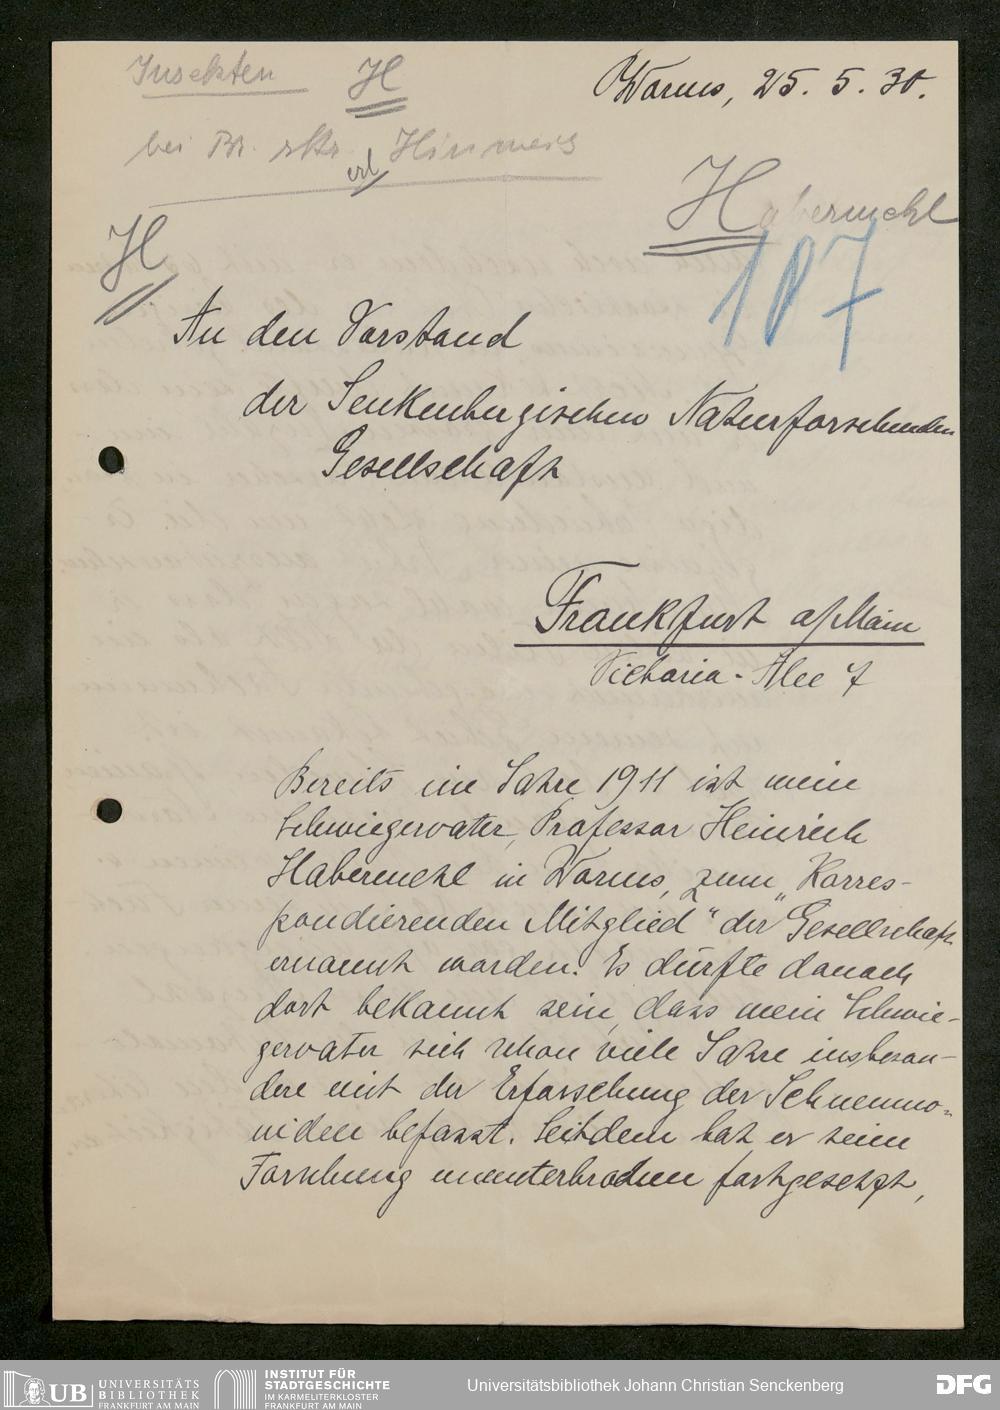 Insekten H
Worms, 25. 5. 30.
bei Br. rkr. Hinweis
erl
Habermehl
187
H
An den Vorstand
der Senkenbergischen Naturforschenden
Gesellschaft
Frankfurt a/Main
Victoria-Alee 7
Bereits im Jahre 1911 ist mein
Schwiegervater, Professor Heinrich
Habermehl in Worms, zum „Korres-
pondierenden Mitglied“ der Gesellschaft
ernannt worden. Es dürfte danach
dort bekannt sein, dass mein Schwie-
gervater sich schon viele Jahre insbeson-
dere mit der Erforschung der Ichneumo-
niden befasst. Seitdem hat er seine
Forschung ununterbrochen fortgesetzt,
UB UNIVERSITÄTS
BIBLIOTHEK
FRANKFURT AM MAIN
INSTITUT FÜR
STADTGESCHICHTE
IM KARMELITERKLOSTER
FRANKFURT AM MAIN
Universitätsbibliothek Johann Christian Senckenberg
DFG